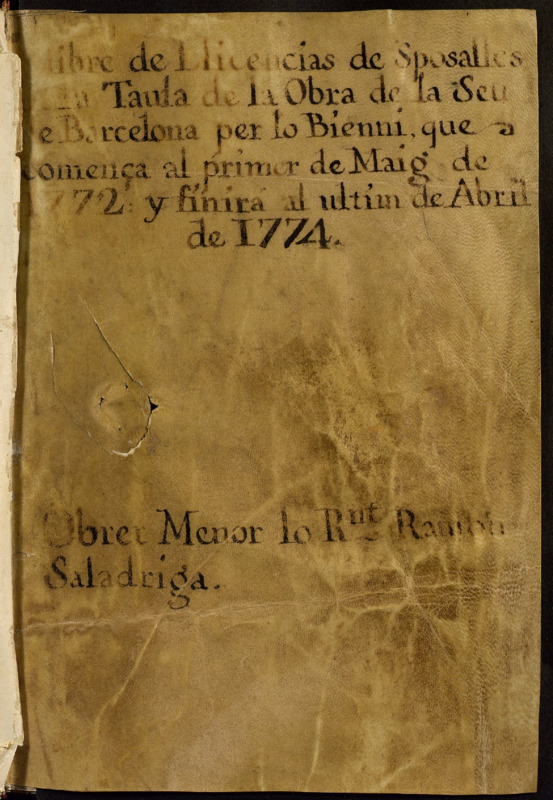 Llibre de Llicencias de Sposalles
Taula de la Obra de la Seu
de Barcelona per lo Bienni, que
comença al primer de Maig de
1772. y finirá al ultim de Abril
de 1774.
Obrer Menor lo Rnt Ramon
Saladriga.